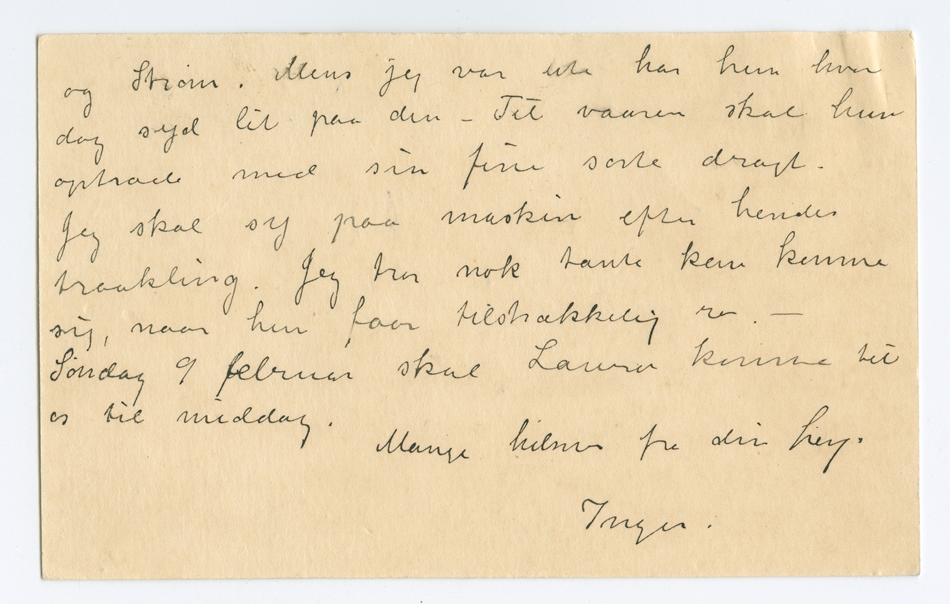 og Strøm. Mens jeg var ute har hun hver
dag syd lit paa den – Til vaaren skal hun
optræde med sin fine sorte dragt.
Jeg skal sy paa maskin efter hendes
traakling. Jeg tror nok tante kan komme
sig, naar hun faar tilstrækkelig ro. –
Søndag 9 februar skal Laura komme til
os til middag.
Mange hilsner fra din heng.
Inger.